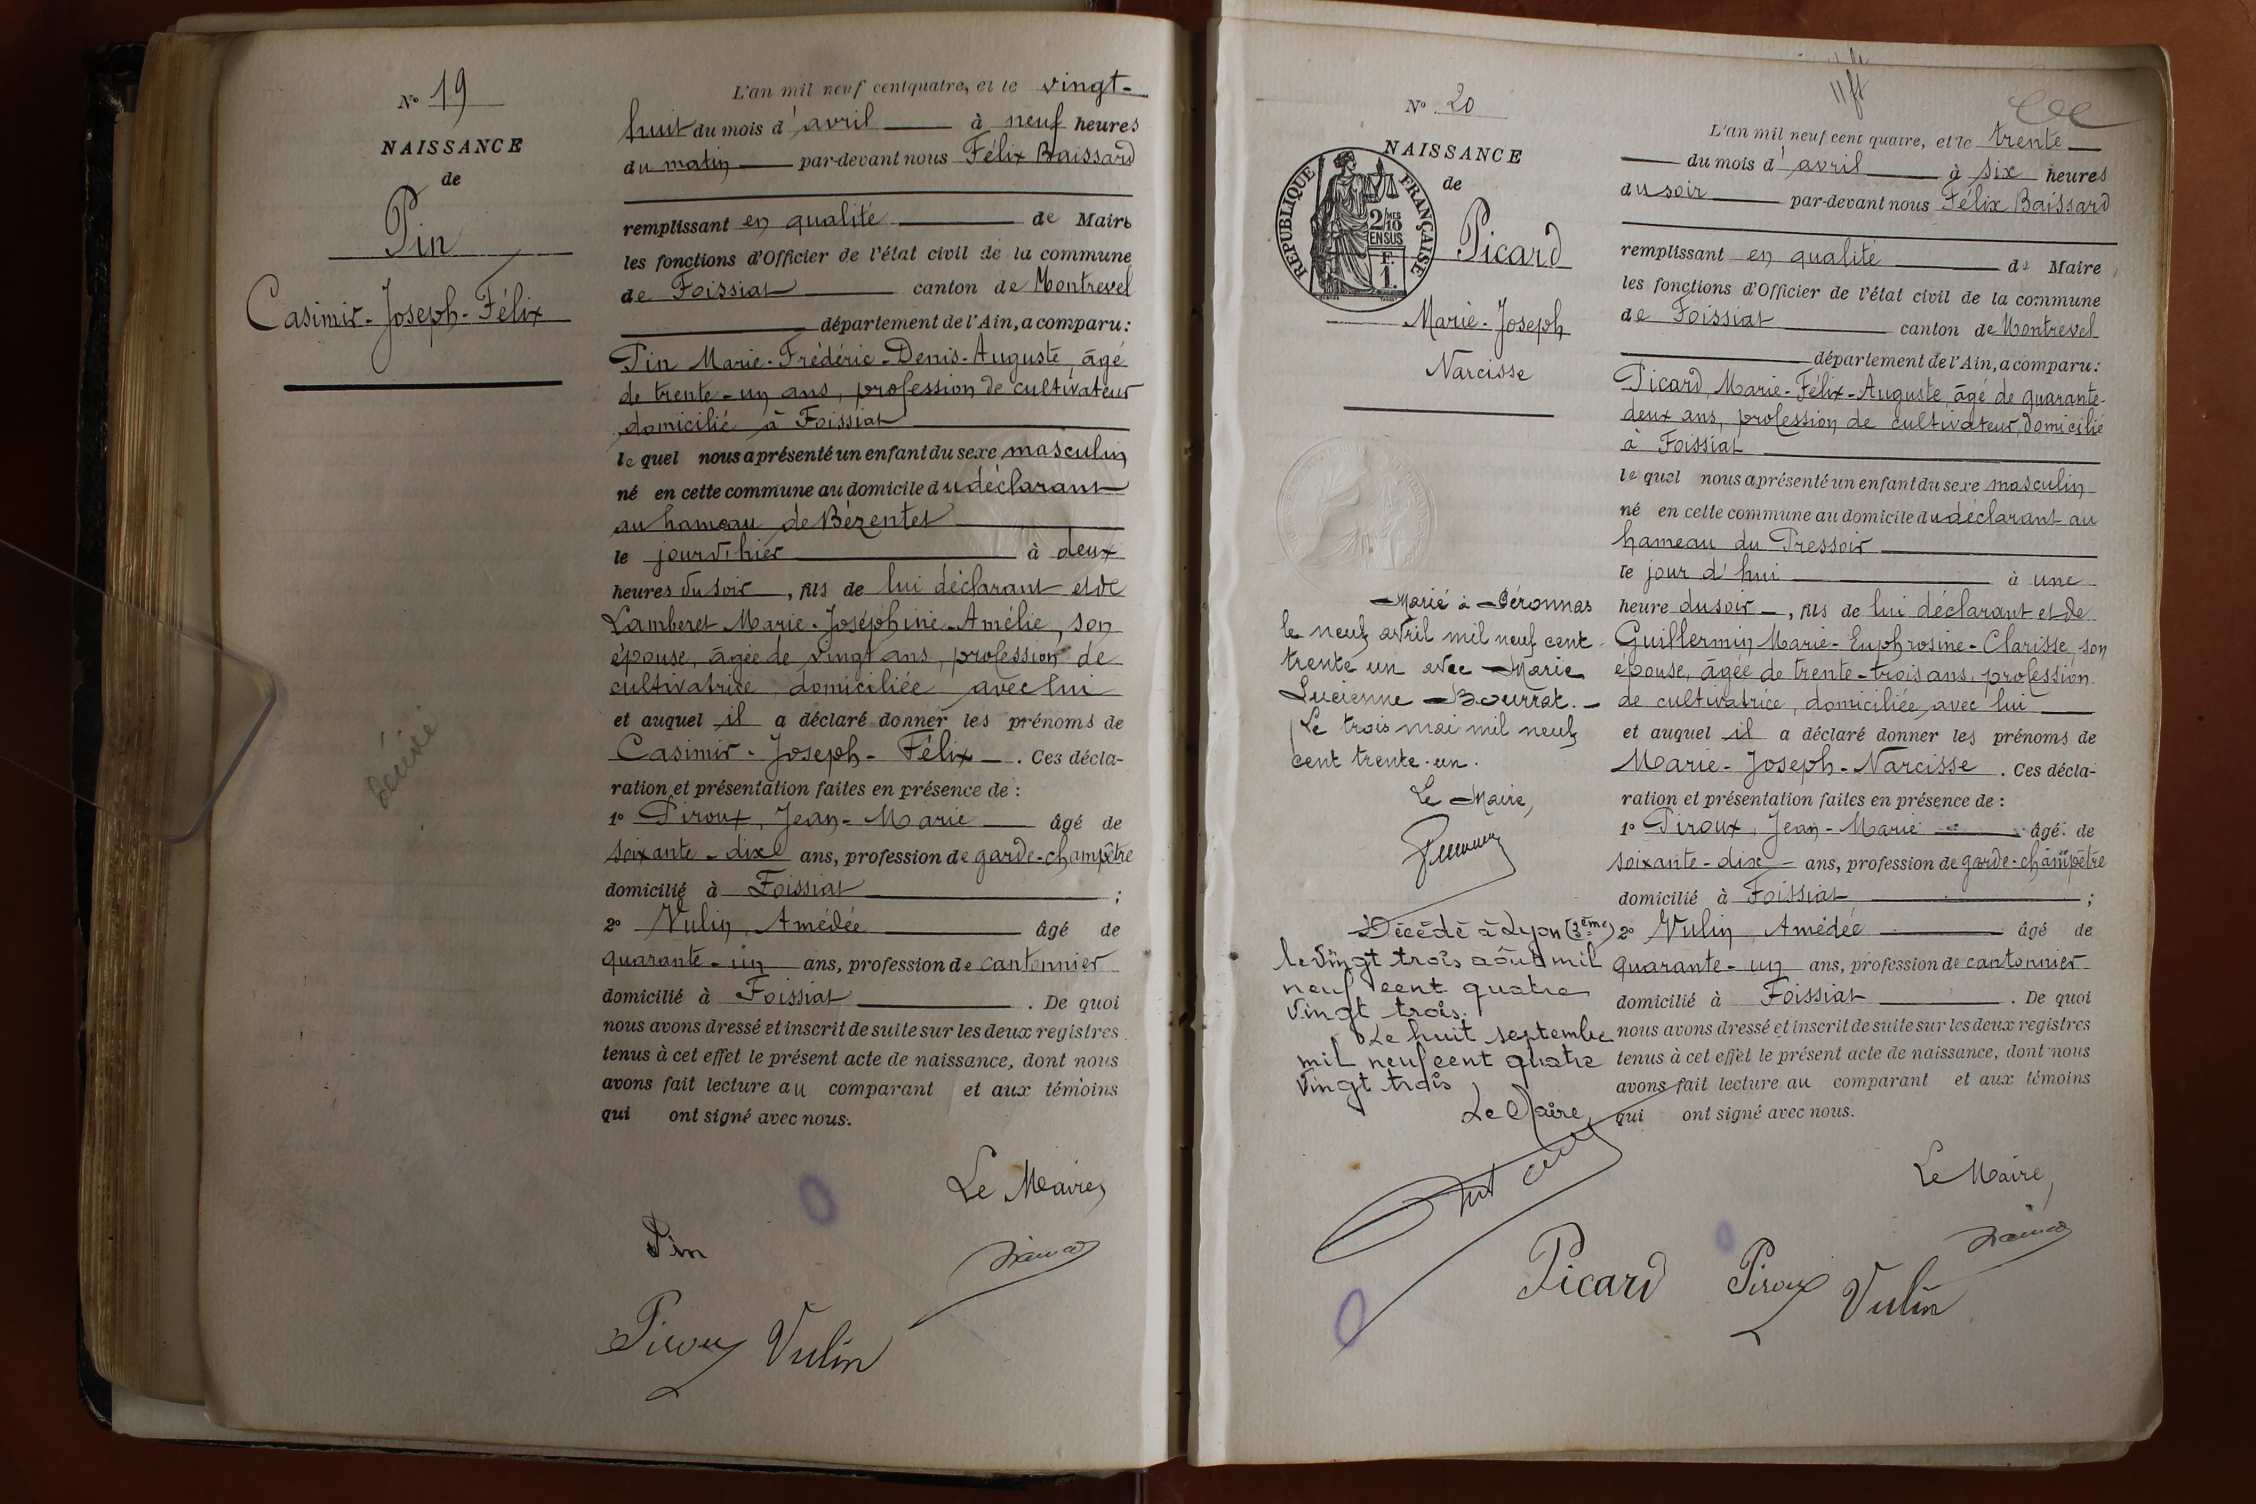 N° 19
NAISSANCE
de
Pin
Casimir-Joseph-Félix
décédé
L'an mil neuf cent quatre, et le vingt-
huit du mois d'avril à neuf heures
du matin par-devant nous Félix Baissard
remplissant en qualité de Maire
les fonctions d'Officier de l'état civil de la commune
de Foissiat canton de Montrevel
département de l'Ain, a comparu:
Pin Marie-Frédéric-Denis-Auguste, âgé
de trente-un ans, profession de cultivateur
domicilié à Foissiat
lequel nous a présenté un enfant du sexe masculin
né en cette commune au domicile du déclarant
au hameau de Bézentet
le jour d'hier à deux
heures du soir, fils de lui déclarant et de
Lamberet Marie-Joséphine-Amélie, son
épouse, âgée de vingt ans, profession de
cultivatrice, domiciliée avec lui
et auquel il a déclaré donner les prénoms de
Casimir-Joseph-Félix. Ces décla-
ration et présentation faites en présence de:
1° Piroux, Jean-Marie âgé de
soixante-dix ans, profession de garde-champêtre
domicilié à Foissiat;
2° Vulin, Amédée âgé de
quarante-un ans, profession de cantonnier
domicilié à Foissiat. De quoi
nous avons dressé et inscrit de suite sur les deux registres
tenus à cet effet le présent acte de naissance, dont nous
avons fait lecture au comparant et aux témoins
qui ont signé avec nous.
Le Maire,
Pin
Piroux Vulin
N° 20
NAISSANCE
de
Picard
Marie-Joseph
Narcisse
RÉPUBLIQUE FRANÇAISE
2/10 MES
EN SUS
F.
1.
Marié à Péronnas
le neuf avril mil neuf cent
trente un avec Marie
Lucienne Bourrat.
Le trois mai mil neuf
cent trente-un.
Le Maire,
Décédé à Lyon (3ème)
le vingt trois août mil
neuf cent quatre
vingt trois.
Le huit septembre
mil neuf cent quatre
vingt trois
Le Maire,
L'an mil neuf cent quatre, et le trente
du mois d'avril à six heures
du soir par-devant nous Félix Baissard
remplissant en qualité de Maire
les fonctions d'Officier de l'état civil de la commune
de Foissiat canton de Montrevel
département de l'Ain, a comparu:
Picard, Marie-Félix-Auguste, âgé de quarante-
deux ans, profession de cultivateur, domicilié
à Foissiat
lequel nous a présenté un enfant du sexe masculin
né en cette commune au domicile du déclarant au
hameau du Pressoir
le jour d'hui à une
heure du soir, fils de lui déclarant et de
Guillermin Marie-Euphrosine-Clarisse, son
épouse, âgée de trente-trois ans, profession
de cultivatrice, domiciliée avec lui
et auquel il a déclaré donner les prénoms de
Marie-Joseph-Narcisse. Ces décla-
ration et présentation faites en présence de:
1° Piroux, Jean-Marie âgé de
soixante-dix ans, profession de garde-champêtre
domicilié à Foissiat;
2° Vulin, Amédée âgé de
quarante-un ans, profession de cantonnier
domicilié à Foissiat. De quoi
nous avons dressé et inscrit de suite sur les deux registres
tenus à cet effet le présent acte de naissance, dont nous
avons fait lecture au comparant et aux témoins
qui ont signé avec nous.
Le Maire,
Picard Piroux Vulin